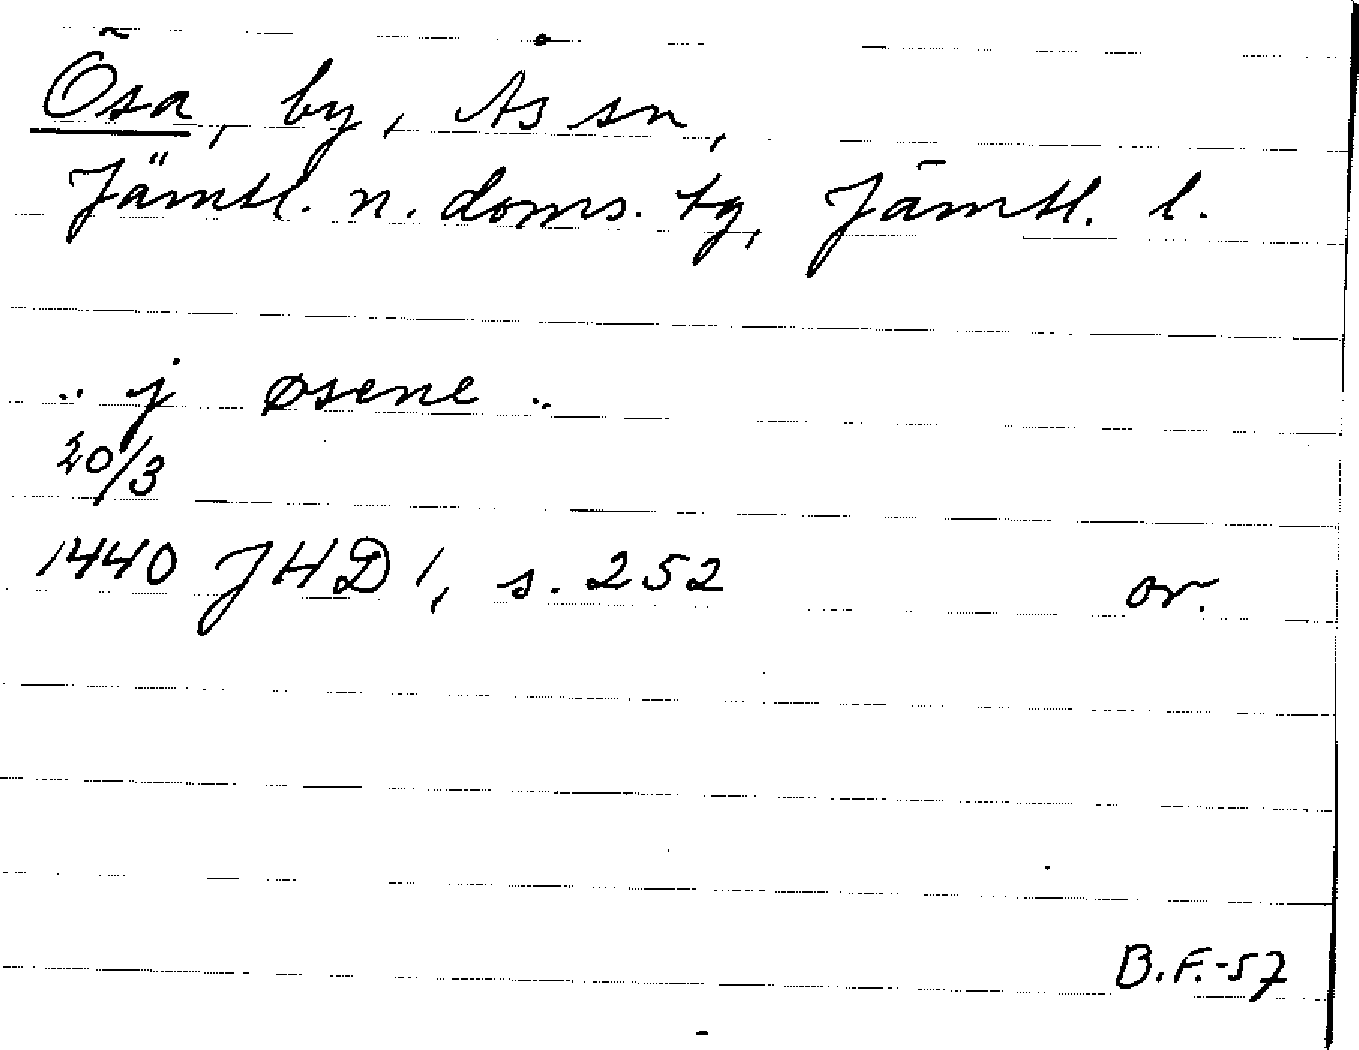 Ösa, by, Ås sn,
Jämtl. n. doms. tg, Jämtl. l.
.. j øsene ..
20/3
1440 JHD 1, s. 252 or.
B.F.-57